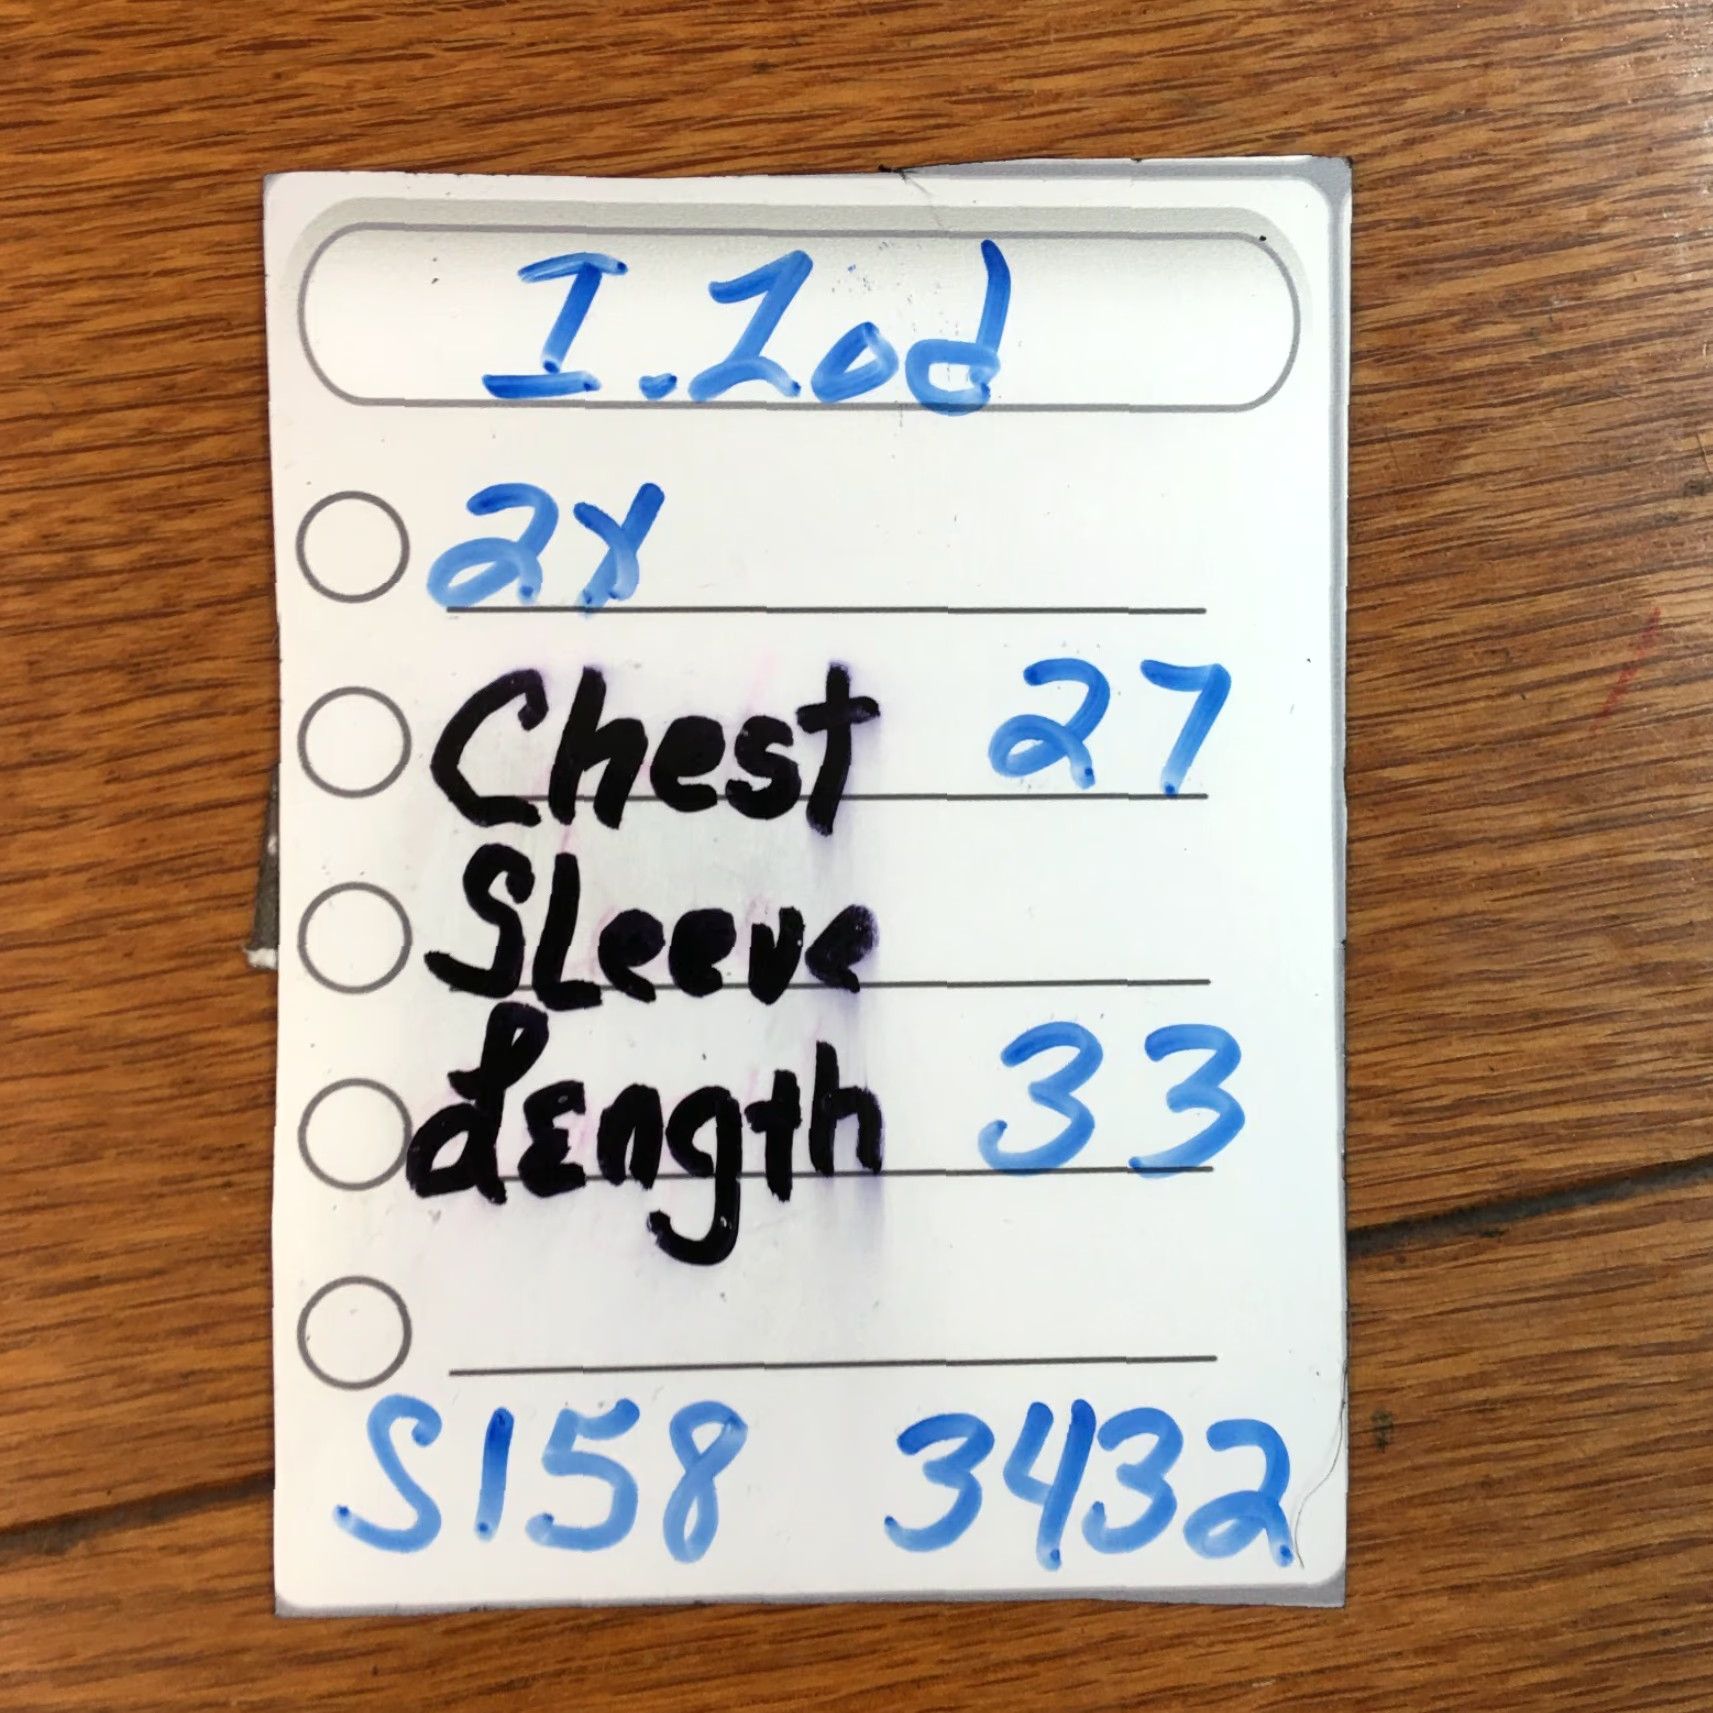 I.Zod
2x
Chest 27
SLeeve
Length 33
S158 3432